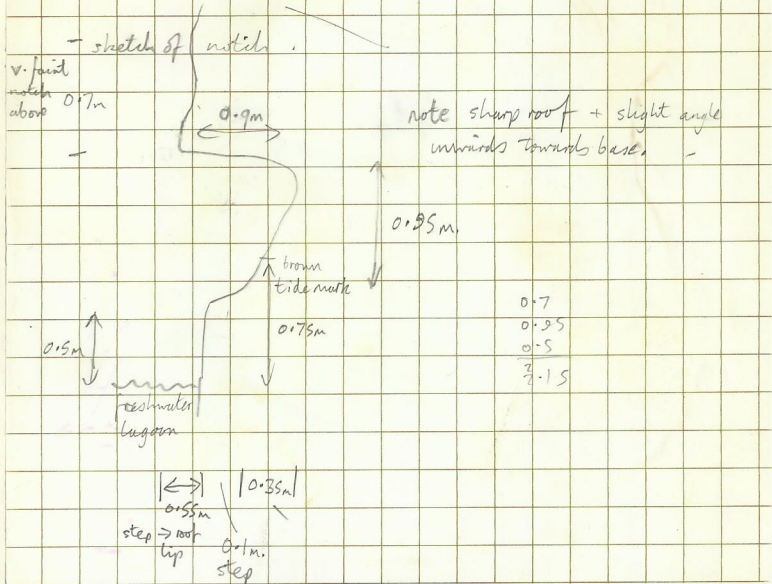 - sketch of notch.
v. faint
notch
above
0.7m
0.9m
note sharp roof + slight angle
inwards towards base.
0.95m.
brown
tide mark
0.75m
0.5m
freshwater
lagoon
0.7
0.95
0.5
2
2.15
0.55m
step → roof
lip
0.1m.
step
0.35m